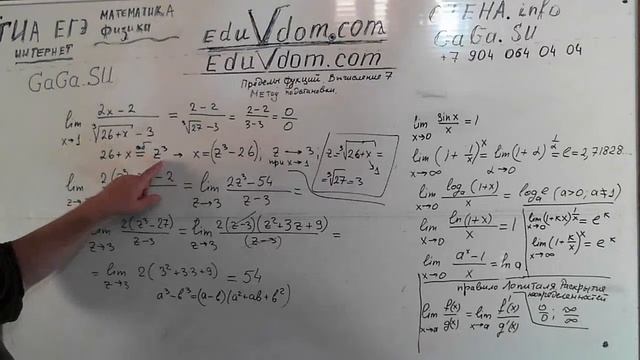 ГИА ЕГЭ МАТЕМАТИКА
физика
ИНТЕРНЕТ
GaGa.SU
EduVdom.com
EduVdom.com
Пределы функций. Вычисление 7
Метод подстановки.
ЦЕНА.info
GaGa.SU
+7 904 064 04 04
lim x→1 (2x-2)/(∛(26+x) - 3) = (2-2)/(∛27 - 3) = (2-2)/(3-3) = 0/0
26+x = z³ → x=(z³-26); z → 3; при x→1
z=∛(26+x) =
x→1
=∛27 = 3
= lim z→3 (2z³-54)/(z-3) =
lim z→3 2(z³-27)/(z-3) = lim z→3 2(z-3)(z²+3z+9)/(z-3) =
= lim z→3 2(3²+33+9) = 54
a³-b³=(a-b)(a²+ab+b²)
lim x→0 sinx/x = 1
lim x→∞ (1+1/x)^x = lim α→0 (1+α)^(1/α) = e = 2,71828
lim x→0 logₐ(1+x)/x = logₐe (a>0, a≠1)
lim x→0 ln(1+x)/x = 1
lim x→0 (1+kx)^(1/x) = e^k
lim x→∞ (1+k/x)^x = e^k
lim x→0 (a^x-1)/x = ln a
правило Лопиталя Раскрытие
неопределенностей
lim x→a f(x)/g(x) = lim x→a f'(x)/g'(x) 0/0; ∞/∞